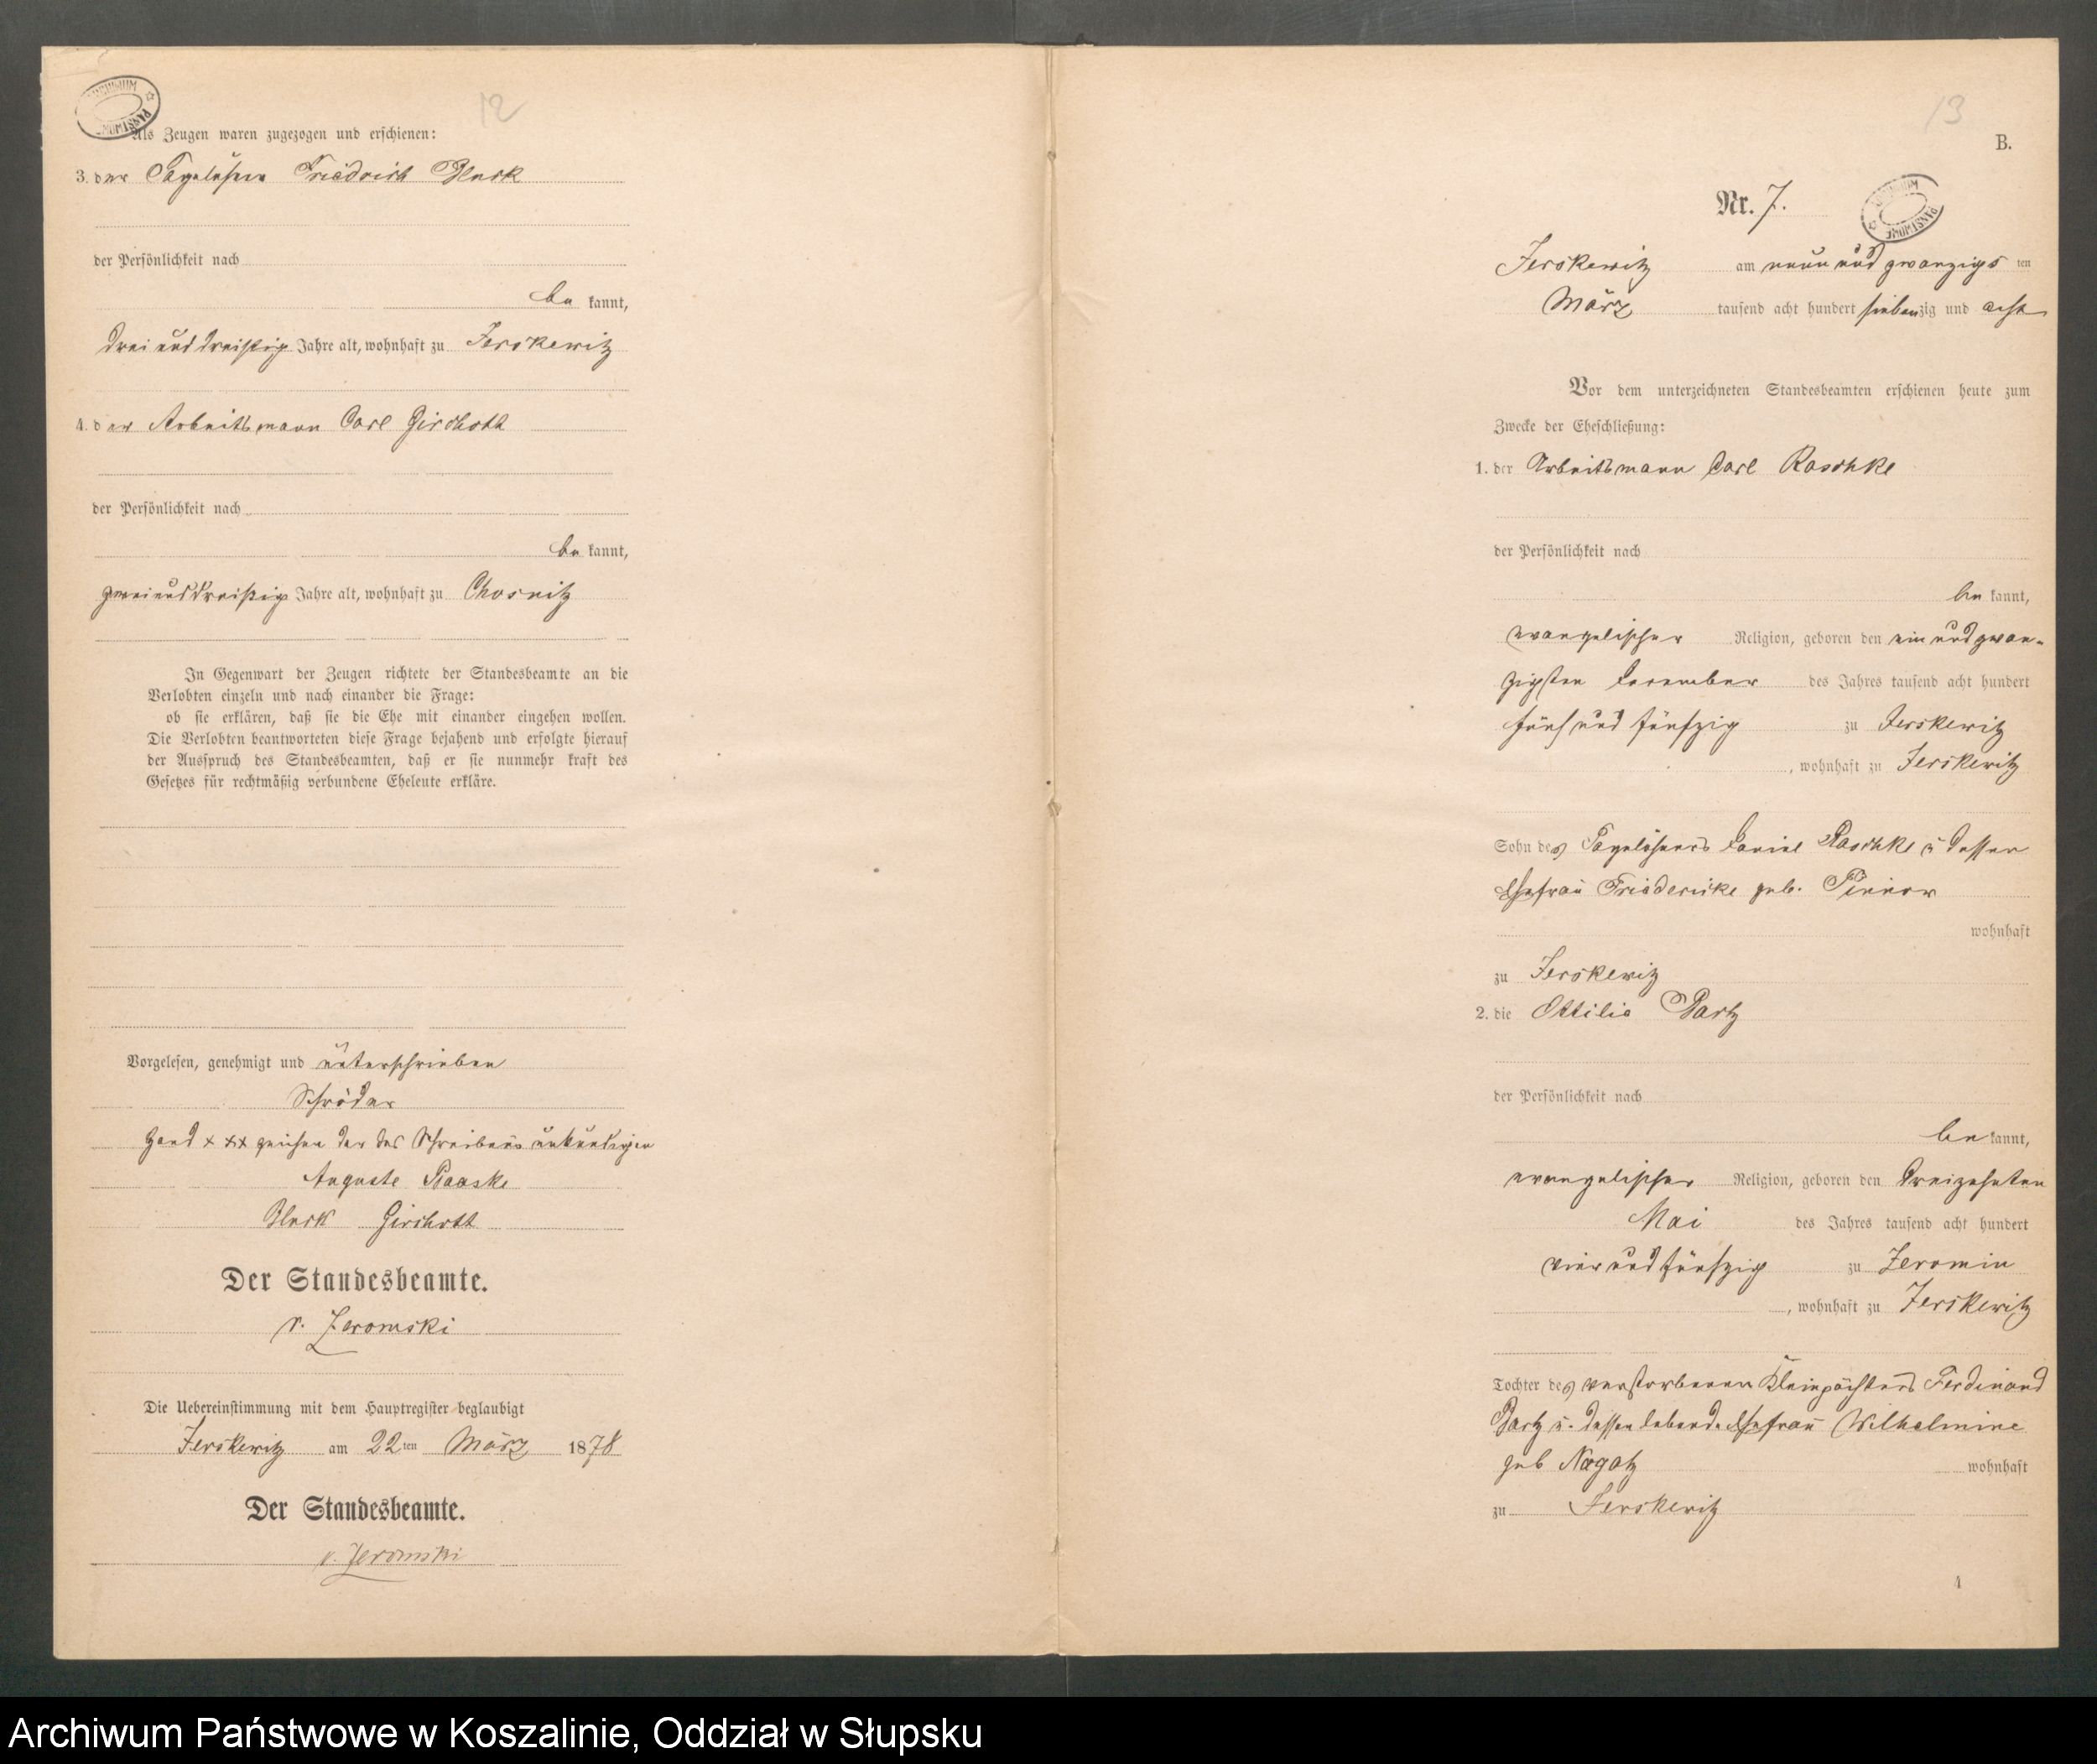 12
Als Zeugen waren zugezogen und erschienen:
3. der Tagelöhner Friedrich Bluck
der Persönlichkeit nach
be kannt,
drei und dreißig Jahre alt, wohnhaft zu Jerskewitz
4. der Arbeitsmann Carl Girchott
der Persönlichkeit nach
be kannt,
zwei und dreißig Jahre alt, wohnhaft zu Chosnitz
In Gegenwart der Zeugen richtete der Standesbeamte an die
Verlobten einzeln und nach einander die Frage:
ob sie erklären, daß sie die Ehe mit einander eingehen wollen.
Die Verlobten beantworteten diese Frage bejahend und erfolgte hierauf
der Ausspruch des Standesbeamten, daß er sie nunmehr kraft des
Gesetzes für rechtmäßig verbundene Eheleute erkläre.
Vorgelesen, genehmigt und unterschrieben
Schröder
Hand x xx zeichen der des Schreibens unkundigen
Auguste Raaske
Girchott
Der Standesbeamte.
v. Zeromski
Die Uebereinstimmung mit dem Hauptregister beglaubigt
Jerskewitz am 22ten März 1878
Der Standesbeamte.
v. Zeromski
13
B.
Nr. 7.
Jerskewitz am neun und zwanzigs ten
März tausend acht hundert siebenzig und acht
Vor dem unterzeichneten Standesbeamten erschienen heute zum
Zwecke der Eheschließung:
1. der Arbeitsmann Carl Raschke
der Persönlichkeit nach
be kannt,
evangelischer Religion, geboren den ein und zwan-
zigsten Dezember des Jahres tausend acht hundert
fünf und fünfzig zu Jerskewitz
, wohnhaft zu Jerskewitz
Sohn des Tagelöhners Daniel Raschke u dessen
Ehefrau Friedericke geb. Pinnow
wohnhaft
zu Jerskewitz
2. die Ottilie Partz
der Persönlichkeit nach
be kannt,
evangelischer Religion, geboren den dreizehnten
Mai des Jahres tausend acht hundert
vier und fünfzig zu Zeromin
, wohnhaft zu Jerskewitz
Tochter des verstorbenen Kleinpächters Ferdinand
Partz u. dessen lebende Ehefrau Wilhelmine
geb Nagatz wohnhaft
zu Jerskewitz
4
Archiwum Państwowe w Koszalinie, Oddział w Słupsku